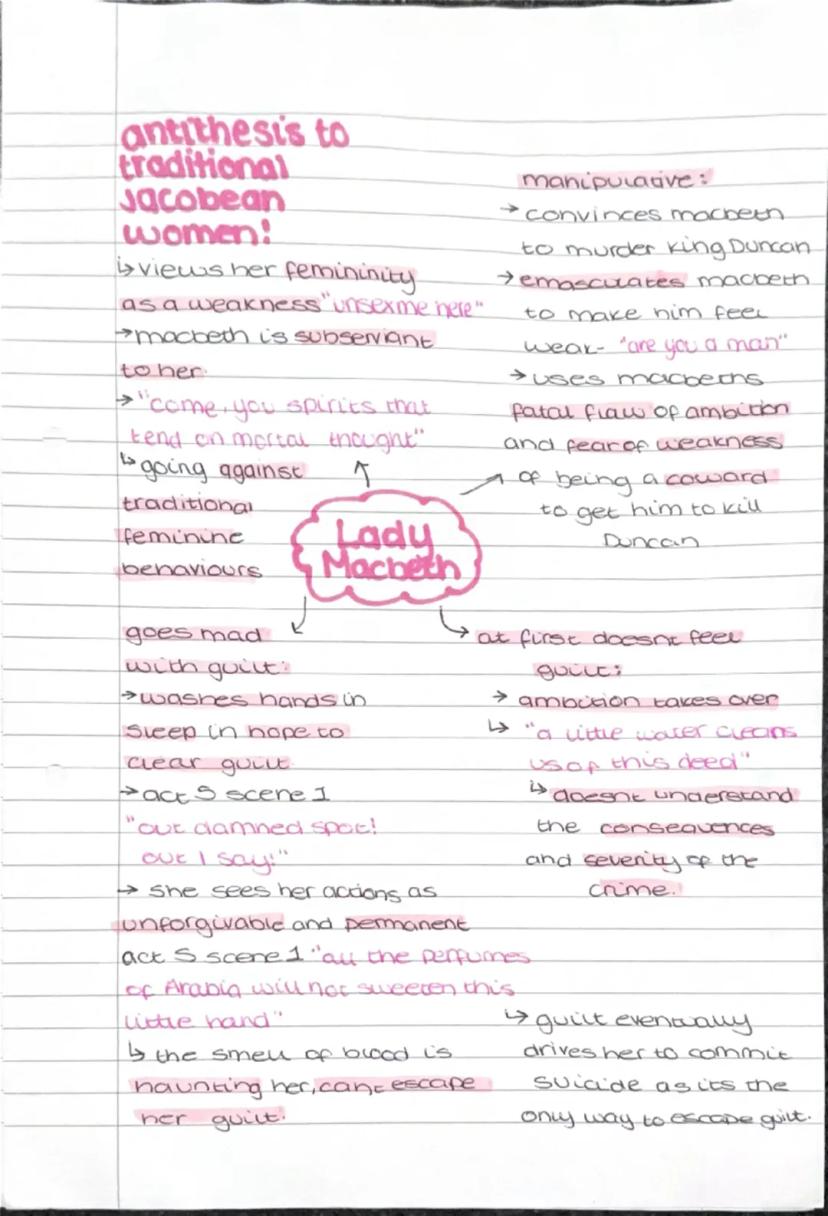 antithesis to
traditional
Jacobean
women!
↳ views her femininity
as a weakness "unsex me here"
→ macbeth is subserviant
to her.
→ "come, you spirits that
tend on mortal thought"
↳ going against
traditional
feminine
behaviours
manipulative:
→ convinces macbeth
to murder king Duncan
→ emasculates macbeth
to make him feel
weak - "are you a man"
→ uses macbeths
fatal flaw of ambition
and fear of weakness
of being a coward
to get him to kill
Duncan
Lady
Macbeth
goes mad
with guilt:
→ washes hands in
sleep in hope to
clear guilt.
→ act 5 scene 1
"out damned spot!
out I say!"
→ she sees her actions as
unforgivable and permanent
act 5 scene 1 "all the perfumes
of Arabia will not sweeten this
little hand"
↳ the smell of blood is
haunting her, cant escape
her guilt.
at first doesnt feel
guilt:
→ ambition takes over
↳ "a little water cleans
us of this deed"
↳ doesnt understand
the consequences
and severity of the
crime.
↳ guilt eventually
drives her to commit
suicide as its the
only way to escape guilt.